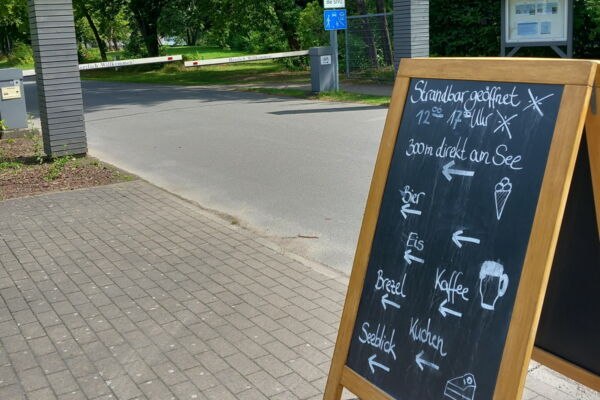 Strandbar geöffnet
12⁰⁰ 17⁰⁰ Uhr
300m direkt am See
Bier
Eis
Brezel Kaffee
Seeblick Kuchen